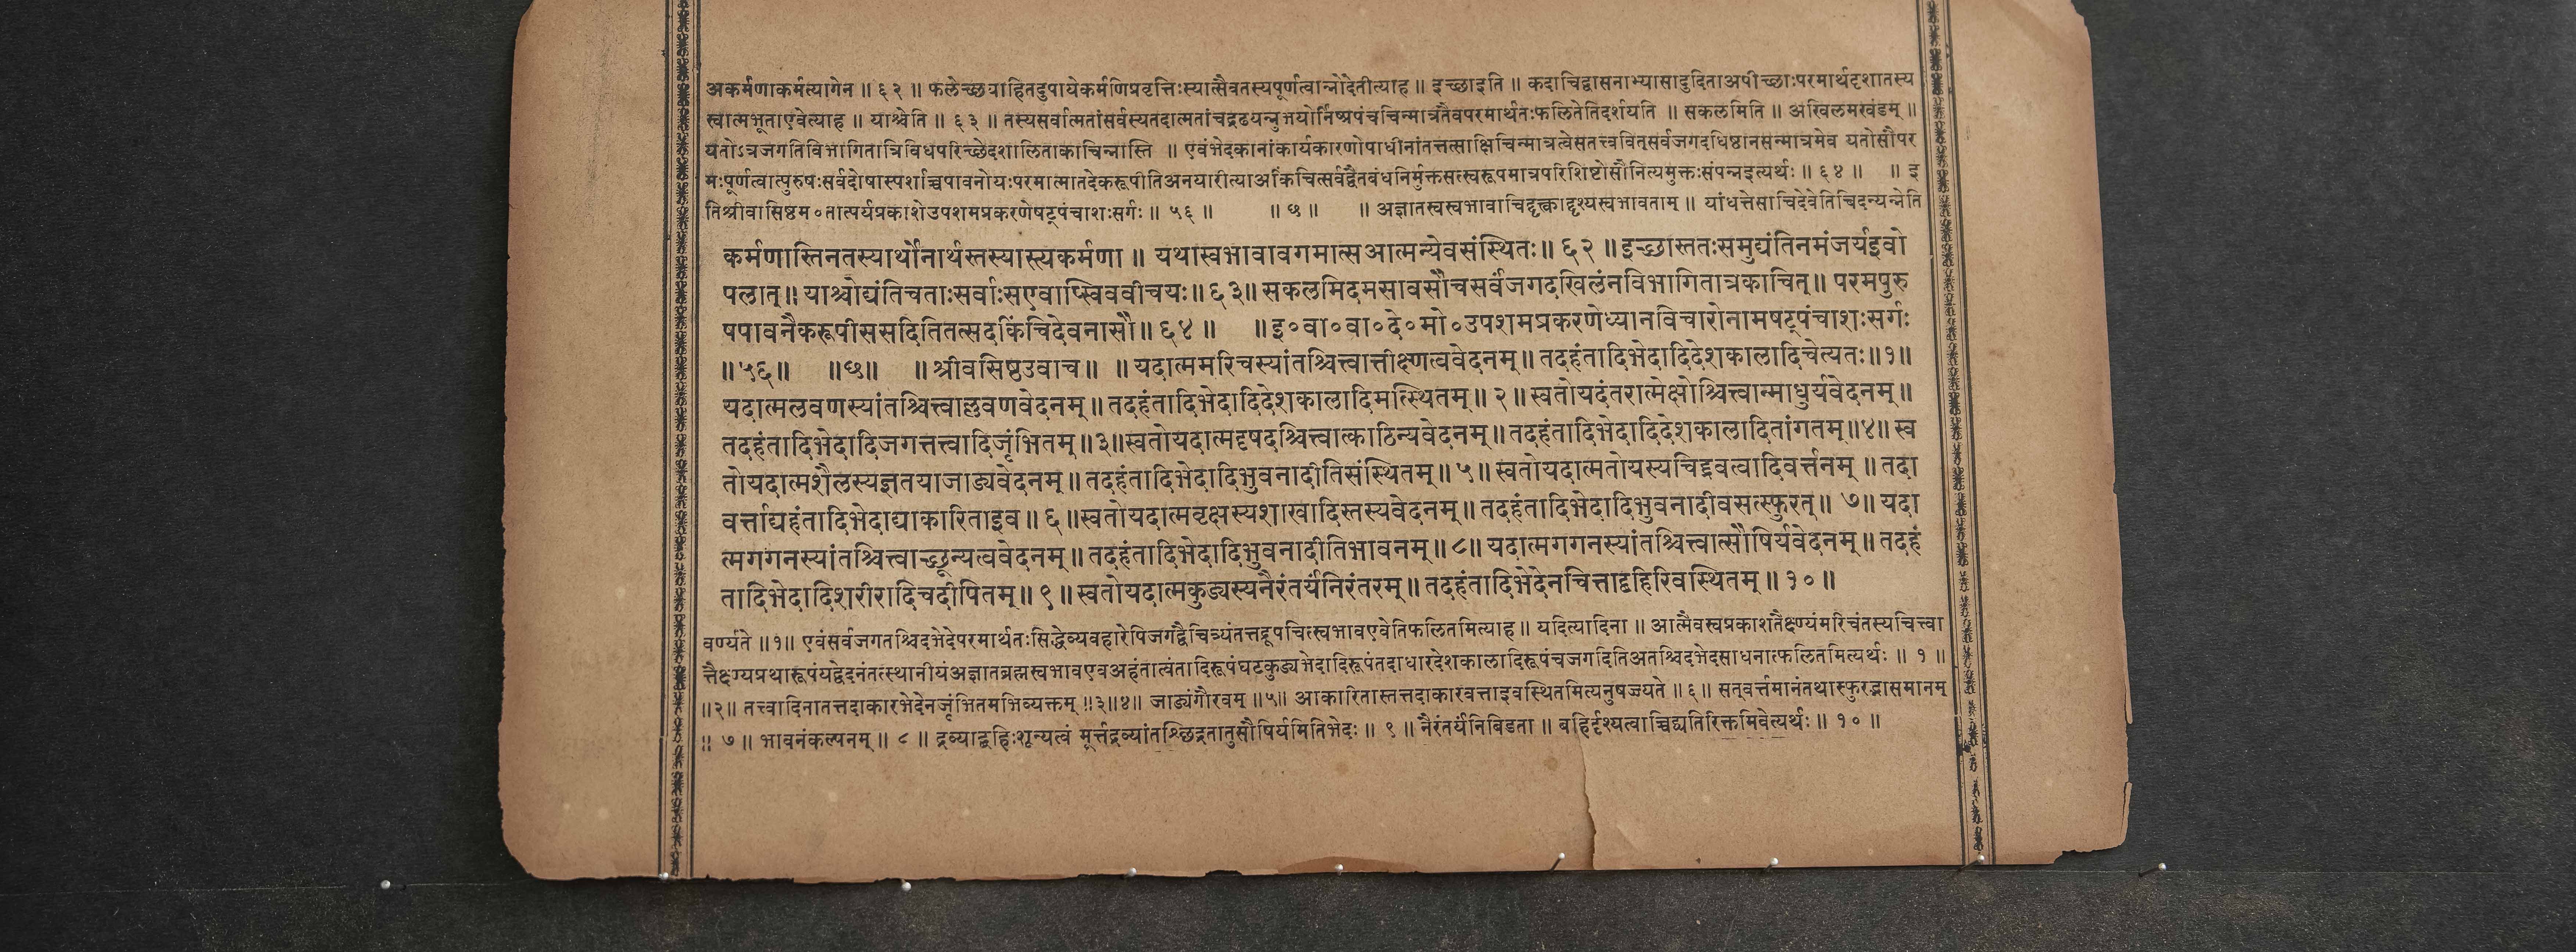 अकर्मणाकर्मत्यागेन ॥ ६२ ॥ फलेच्छयाहितदुपायेकर्मणिप्रवृत्तिःस्यात्सैवतस्यपूर्णत्वान्नोदेतीत्याह ॥ इच्छाइति ॥ कदाचिद्वासनाभ्यासादुदिताअपीच्छाःपरमार्थदृशातस्य
स्वात्मभूताएवेत्याह ॥ याश्चेति ॥ ६३ ॥ तस्यसर्वात्मतांसर्वस्यतदात्मतांचद्रढयन्नुभयोर्निष्प्रपंचचिन्मात्रतैवपरमार्थतःफलितेतिदर्शयति ॥ सकलमिति ॥ अखिलमखंडम् ॥
यतोऽत्रजगतिविभागितात्रिविधपरिच्छेदशालिताकाचिन्नास्ति ॥ एवंभेदकानांकार्यकारणोपाधीनांतत्तत्साक्षिचिन्मात्रत्वेसतत्त्ववित्सर्वजगदधिष्ठानसन्मात्रमेव यतोसौपर
मःपूर्णत्वात्पुरुषःसर्वदोषास्पर्शाच्चपावनोयःपरमात्मातदेकरूपीतिअनयारीत्याअकिंचित्सर्वद्वैतबंधनिर्मुक्तसत्स्वरूपमात्रपरिशिष्टोसौनित्यमुक्तःसंपन्नइत्यर्थः ॥ ६४ ॥ ॥ इ
तिश्रीवासिष्ठम०तात्पर्यप्रकाशेउपशमप्रकरणेषट्पंचाशःसर्गः ॥ ५६ ॥ ॥ छ ॥ ॥ अज्ञातस्वस्वभावाचिद्दृक्त्वाद्दृश्यस्वभावताम् ॥ यांधत्तेसाचिदेवेतिचिदन्यन्नेति
कर्मणास्तिनतस्यार्थोनार्थस्तस्यास्त्यकर्मणा ॥ यथास्वभावावगमात्सआत्मन्येवसंस्थितः॥ ६२ ॥इच्छास्ततःसमुद्यंतिनमंजर्यइवो
पलात्॥ याश्चोद्यंतिचताःसर्वाःसएवाप्स्विववीचयः॥६३॥ सकलमिदमसावसौचसर्वंजगदखिलंनविभागितात्रकाचित्॥ परमपुरु
षपावनैकरूपीससदितितत्सदकिंचिदेवनासौ॥ ६४ ॥ ॥इ०वा०वा०दे०मो०उपशमप्रकरणेध्यानविचारोनामषट्पंचाशःसर्गः
॥५६॥ ॥छ॥ ॥ श्रीवसिष्ठउवाच॥ ॥ यदात्ममरिचस्यांतश्चित्त्वात्तीक्ष्णत्ववेदनम्॥ तदहंतादिभेदादिदेशकालादिचेत्यतः॥१॥
यदात्मलवणस्यांतश्चित्त्वाल्लवणवेदनम्॥ तदहंतादिभेदादिदेशकालादिमत्स्थितम्॥ २॥ स्वतोयदंतरात्मेक्षोश्चित्त्वान्माधुर्यवेदनम्॥
तदहंतादिभेदादिजगत्तत्त्वादिजृंभितम्॥३॥स्वतोयदात्मदृषदश्चित्त्वात्काठिन्यवेदनम्॥ तदहंतादिभेदादिदेशकालादितांगतम्॥४॥ स्व
तोयदात्मशैलस्यज्ञतयाजाड्यवेदनम्॥ तदहंतादिभेदादिभुवनादीतिसंस्थितम्॥ ५॥ स्वतोयदात्मतोयस्यचिद्द्रवत्वादिवर्त्तनम् ॥ तदा
वर्त्ताद्यहंतादिभेदाद्याकारिताइव॥ ६ ॥स्वतोयदात्मवृक्षस्यशाखादिस्तस्यवेदनम्॥ तदहंतादिभेदादिभुवनादीवसत्स्फुरत्॥ ७॥ यदा
त्मगगनस्यांतश्चित्त्वाच्छून्यत्ववेदनम्॥ तदहंतादिभेदादिभुवनादीतिभावनम्॥ ८॥ यदात्मगगनस्यांतश्चित्त्वात्सौषिर्यवेदनम्॥ तदहं
तादिभेदादिशरीरादिचदीपितम्॥ ९॥ स्वतोयदात्मकुड्यस्यनैरंतर्यंनिरंतरम्॥ तदहंतादिभेदेनचित्ताद्बहिरिवस्थितम्॥ १० ॥
वर्ण्यते ॥१॥ एवंसर्वजगतश्चिदभेदेपरमार्थतःसिद्धेव्यवहारेपिजगद्वैचित्र्यंतत्तद्रूपचित्स्वभावएवेतिफलितमित्याह ॥ यदित्यादिना ॥ आत्मैवस्वप्रकाशतैक्ष्ण्यंमरिचंतस्यचित्त्वा
त्तैक्ष्ण्यप्रथारूपंयद्वेदनंतत्स्थानीयंअज्ञातब्रह्मस्वभावएवअहंतात्वंतादिरूपंघटकुड्यभेदादिरूपंतदाधारदेशकालादिरूपंचजगदितिअतश्चिदभेदसाधनात्फलितमित्यर्थः ॥ १ ॥
॥२॥ तत्त्वादिनातत्तदाकारभेदेनजृंभितमभिव्यक्तम् ॥३॥४॥ जाड्यंगौरवम् ॥५॥ आकारितास्तत्तदाकारवत्ताइवस्थितमित्यनुषज्यते ॥६॥ सत्वर्त्तमानंतथास्फुरद्भासमानम्
॥ ७ ॥ भावनंकल्पनम् ॥ ८ ॥ द्रव्याद्बहिःशून्यत्वं मूर्त्तद्रव्यांतश्छिद्रतातुसौषिर्यमितिभेदः ॥ ९ ॥ नैरंतर्यंनिबिडता ॥ बहिर्दृश्यत्वाच्चिद्व्यतिरिक्तमिवेत्यर्थः ॥ १० ॥